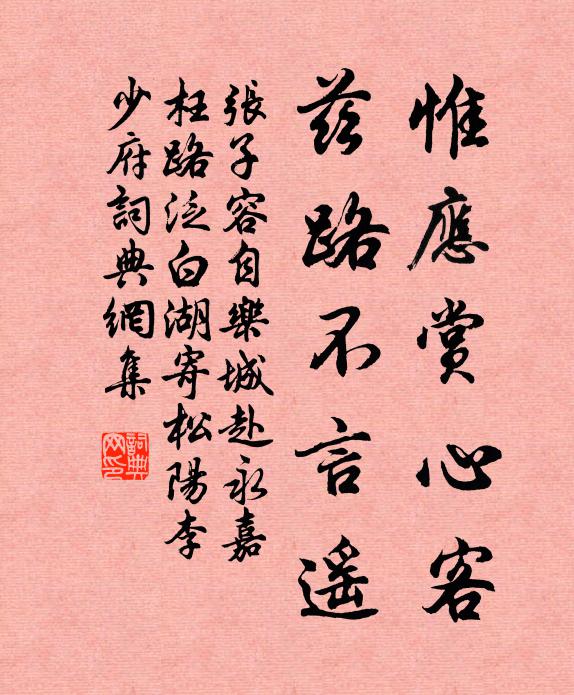 惟應賞心客
茲路不言遥
張子容自樂城赴永嘉
枉路泛白湖寄松陽李
少府詞典網集
詞典
网印